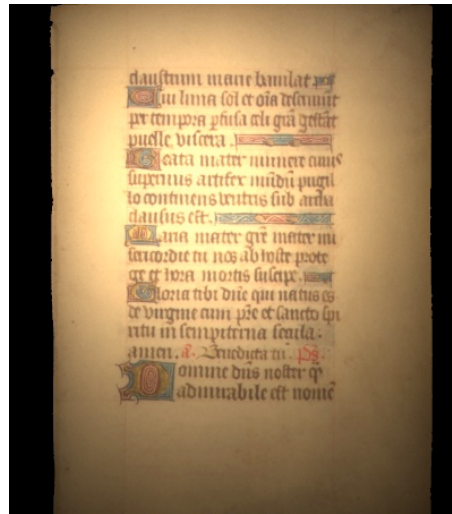 claustrum marie baiulat
Cui luna sol et oīa deseruiūt
per tempora p̄fusa celi grā gestāt
puelle viscera.
Beata mater munere cuius
supernus artifex mūdū pugil
lo continens ventris sub archa
clausus est.
Maria mater grē mater mi
sericordie tu nos ab hoste prote
ge et hora mortis suscipe.
Gloria tibi dn̄e qui natus es
de virgine cum pr̄e et sancto spi
ritu in sempiterna secula.
amen. a. Benedicta tu. ps.
Domine dn̄s noster q̄
admirabile est nomē